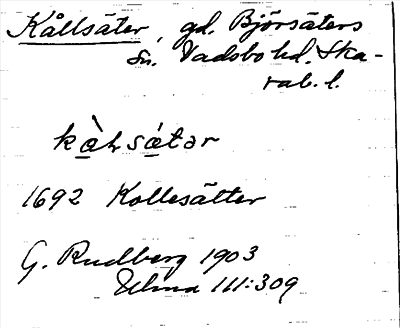 Kållsäter, gd. Björsäters
sn. Vadsbo hd. Ska-
rab. l.
kàlsátər
1692 Kollesätter
G. Rudberg 1903
Ulma 111:309